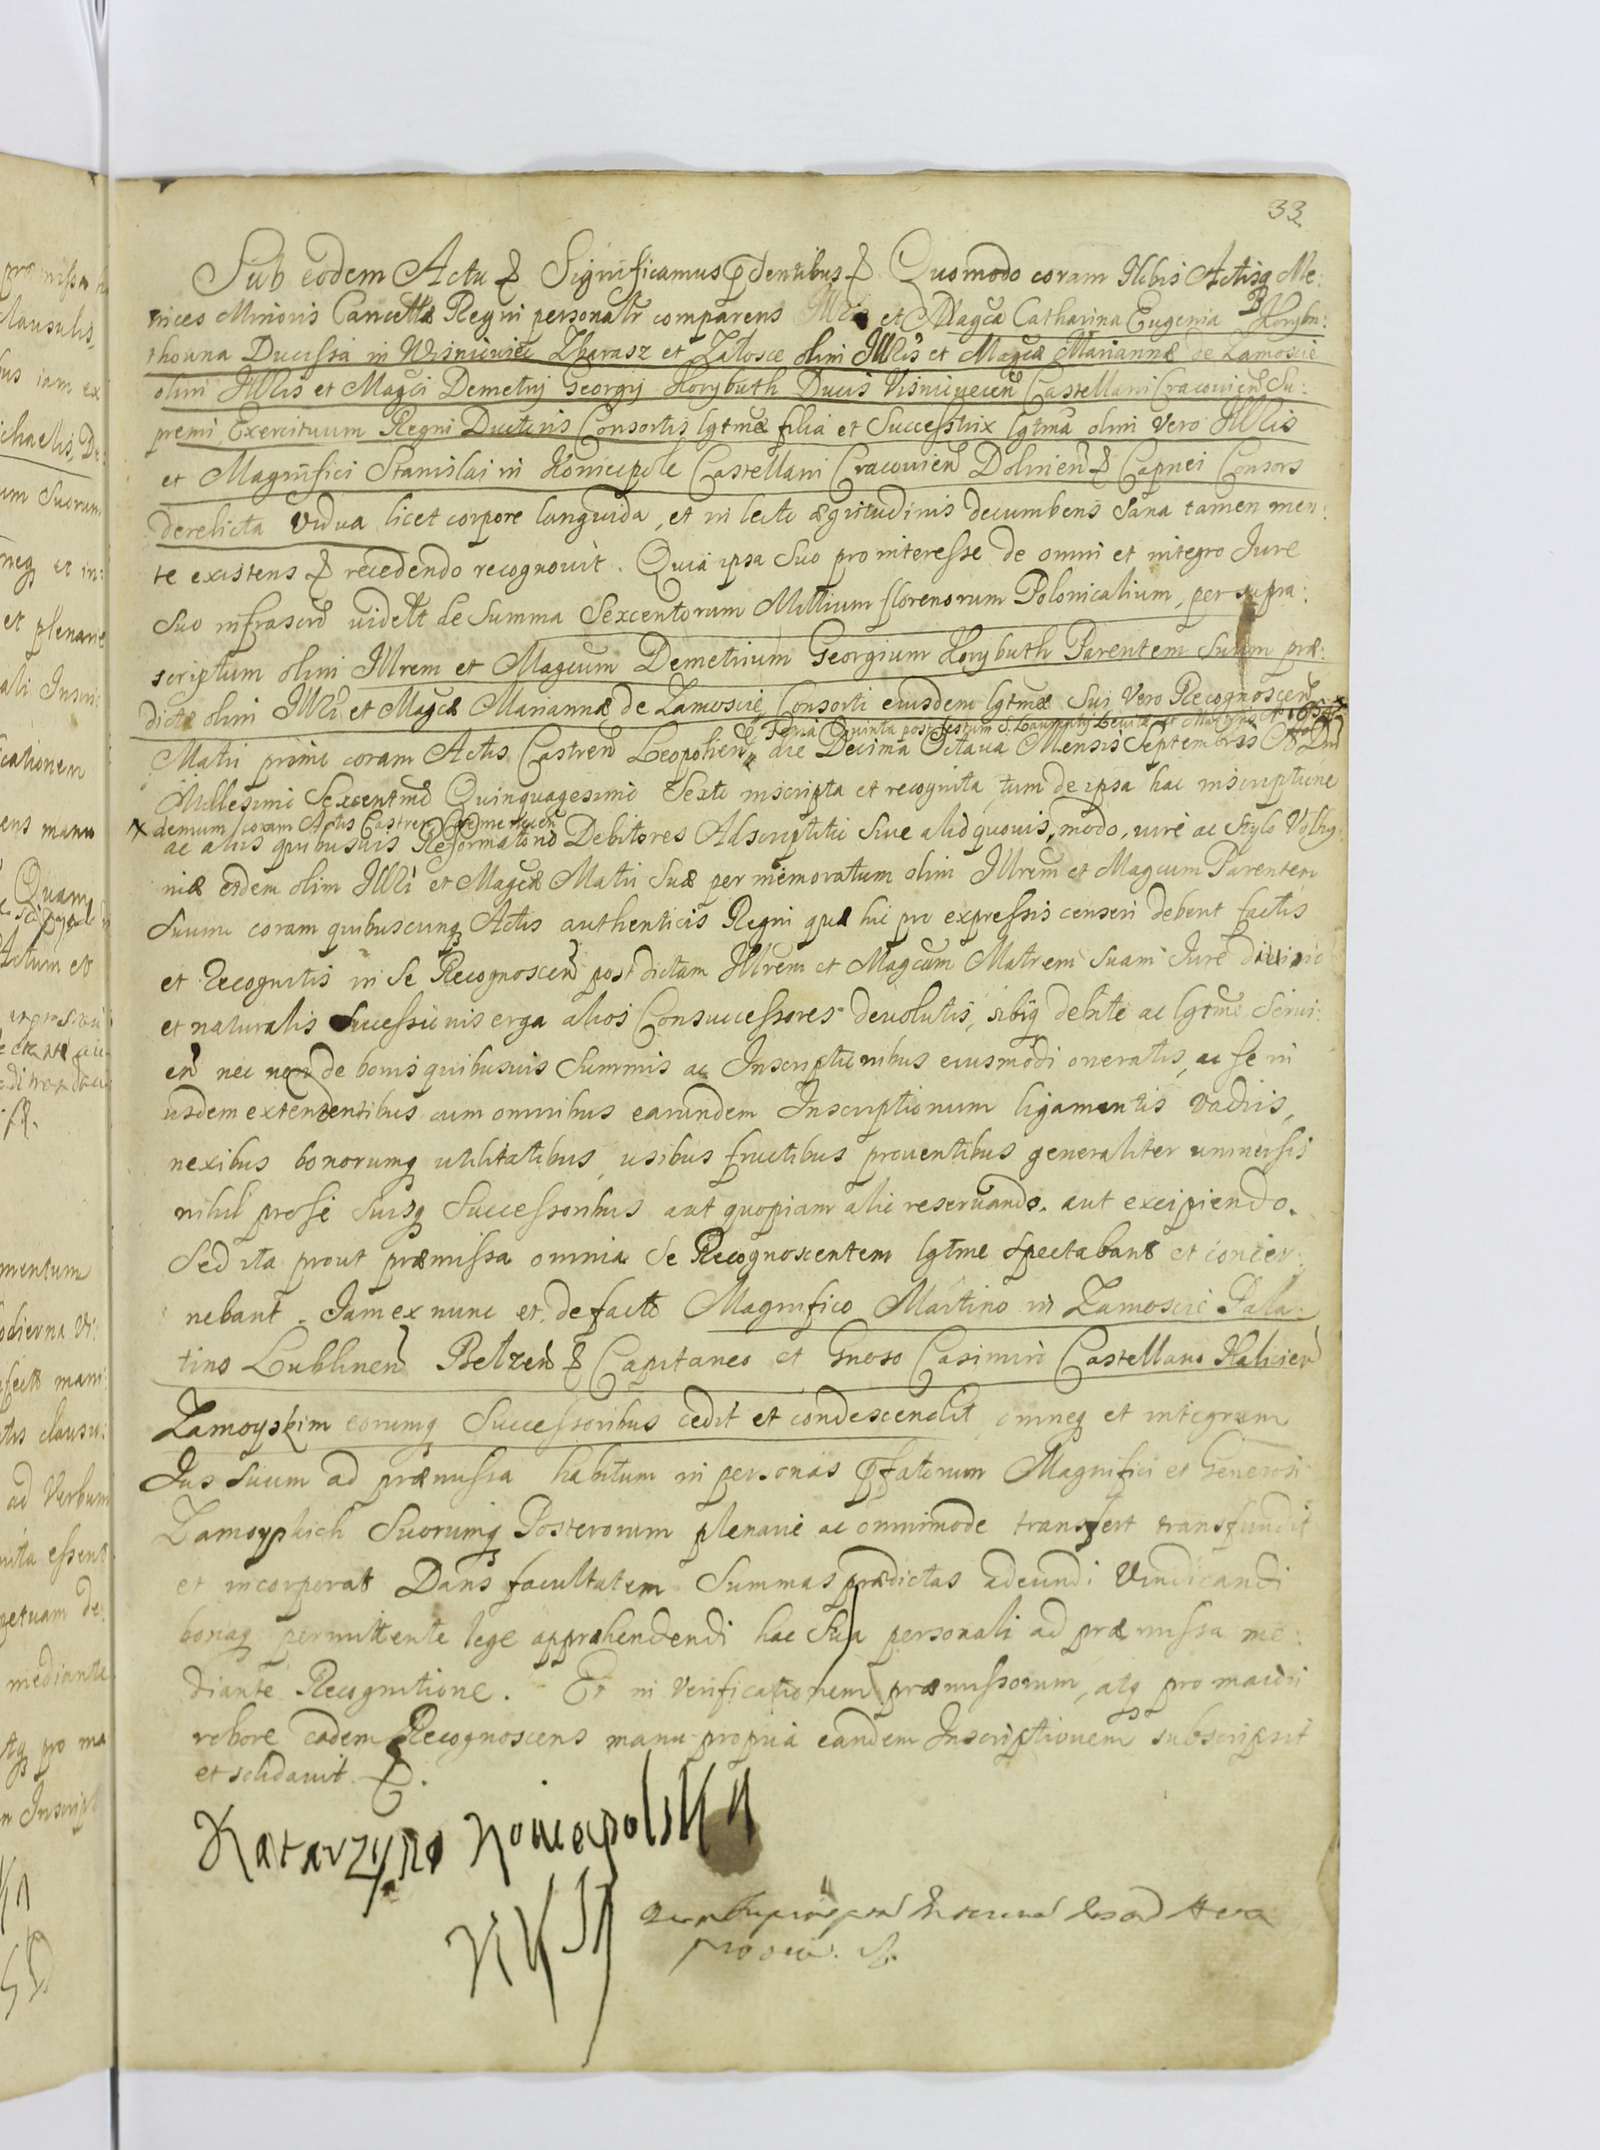 33
Sub eodem Actu & Significamus pñtibus & Quomodo coram Nobis Actisq Me:
trices Minoris Cancellæ Regni personalr comparens Illris et Magca Catharina Eugenia Korybu:
thouna Ducissa in Wisniowiec Zbarasz et Załosce olim Illris et Magcæ Mariannæ de Zamoscie
olim Illris et Magci Demetrij Georgij Korybuth Ducis Visniowiecen Castellani Cracouien Su:
premi Exercituum Regni Ductoris Consortis lgtmæ filia et Successtrix lgtma olim Vero Illris
et Magnifici Stanislai in Koniecpole Castellani Cracouien Dolinen & Capnei Consors
derelicta vidua licet corpore languida, et in lecto ægritudinis decumbens sana tamen men:
te existens & recedendo recognouit. Quia ipsa suo pro interesse de omni et integro Jure
suo infrascro uidelt de Summa Sexcentorum Millium florenorum Polonicalium, per supra:
scriptum olim Illrem et Magcum Demetrium Georgium Korybuth Parentem Suum præ:
dictæ olim Illri et Magcæ Mariannæ de Zamoscie Consorti eiusdem lgtmæ Sui Vero Recognoscen
Feria Quinta post festum S. Laurentij Leuitæ et Martyris A 1654
Matri primo coram Actis Castren Leopolien die Decima Octaua Mensis Septembris A Dni
Millesimo Sexcentmo Quinquagesimo Sexto inscripta et recognita, tum de ipsa hac inscriptione
x demum coram Actis Castren Cremenecen
ac alijs quibusuis Reformatorio Debitores Adscriptitio Siue alio quouis modo, iure ac Stylo Volhy
niæ eidem olim Illri et Magcæ Matri Suæ per memoratum olim Illrem et Magcum Parentem
Suum coram quibuscunq Actis authenticis Regni quæ hic pro expressis censeri debent factis
et recognitis in se Recognoscen post dictam Illrem et Magcam Matrem suam Jure diuino
et naturalis Successionis erga alios Consuccessores deuolutis, sibiq debite ac lgtme serui:
en nec non de bonis quibusuis Summis ac Inscriptionibus eiusmodi oneratis, ac se in
iisdem extendentibus cum omnibus earundem Inscriptionum ligamentis vadiis,
nexibus bonorumq utilitatibus, usibus fructibus prouentibus generaliter uniuersis
nihil pro se suisq Successoribus aut quopiam alio reseruando. aut excipiendo.
Sed ita prout præmissa omnia se Recognoscentem lgtme spectabant et concer:
nebant. Jam ex nunc et de facto Magnifico Martino in Zamoscie Pala:
tino Lublinen Belzen & Capitaneo et Gnoso Casimiro Castellano Halicien
Zamoyskim eorumq Successoribus cedit et condescendit, omneq et integrum
Jus suum ad præmissa habitum in personas pfatorum Magnifici et Generosi
Zamoyskich Suorumq Posterorum plenarie ac omnimode transfert transfundit
et incorporat Dans facultatem Summas prædictas adeundi Vindicandi
bonaq permittente lege apprehendendi hac sua personali ad præmissa me:
diante Recognitione. Et in verificationem præmissorum, atq pro maiori
robore eadem Recognoscens manu propria eandem Inscriptionem subscripsit
et solidauit &.
Katarzyna Koniecpolska